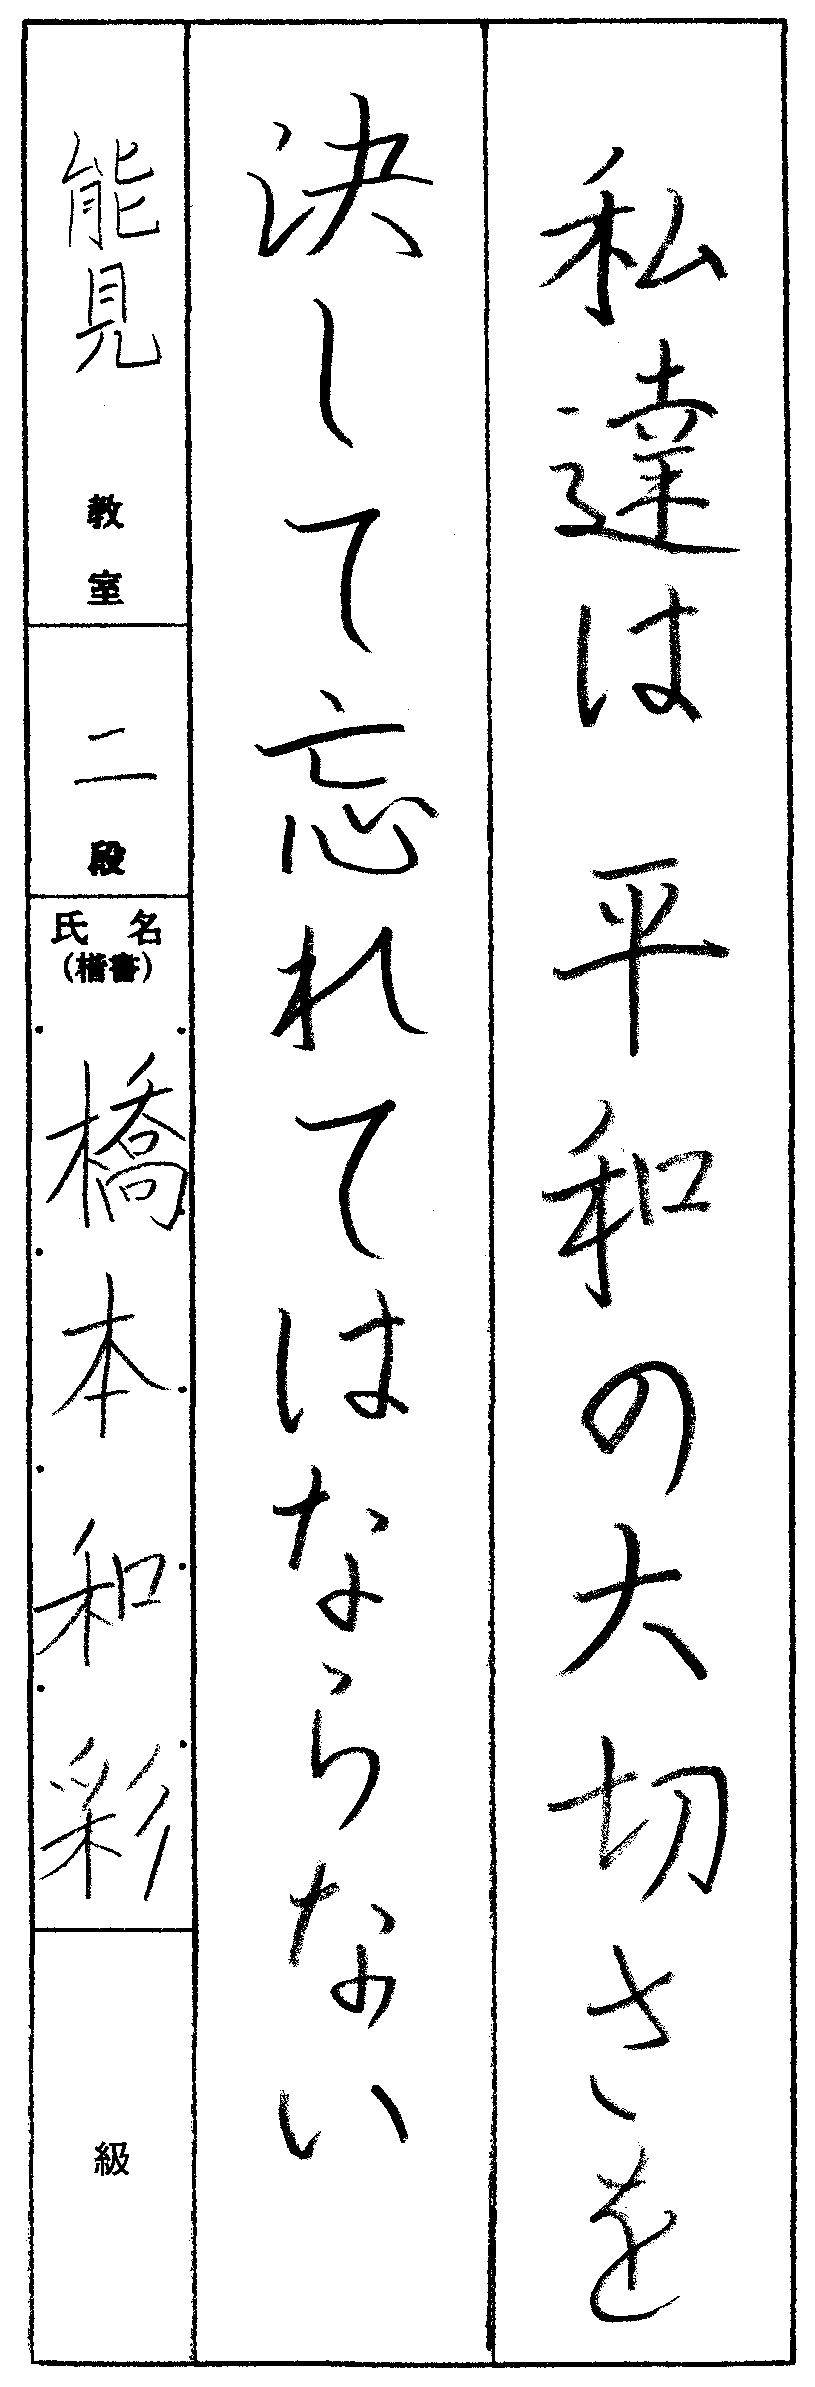 私達は平和の大切さを
決して忘れてはならない
能見教室
二段
氏名
(楷書)
橋本和彩
級